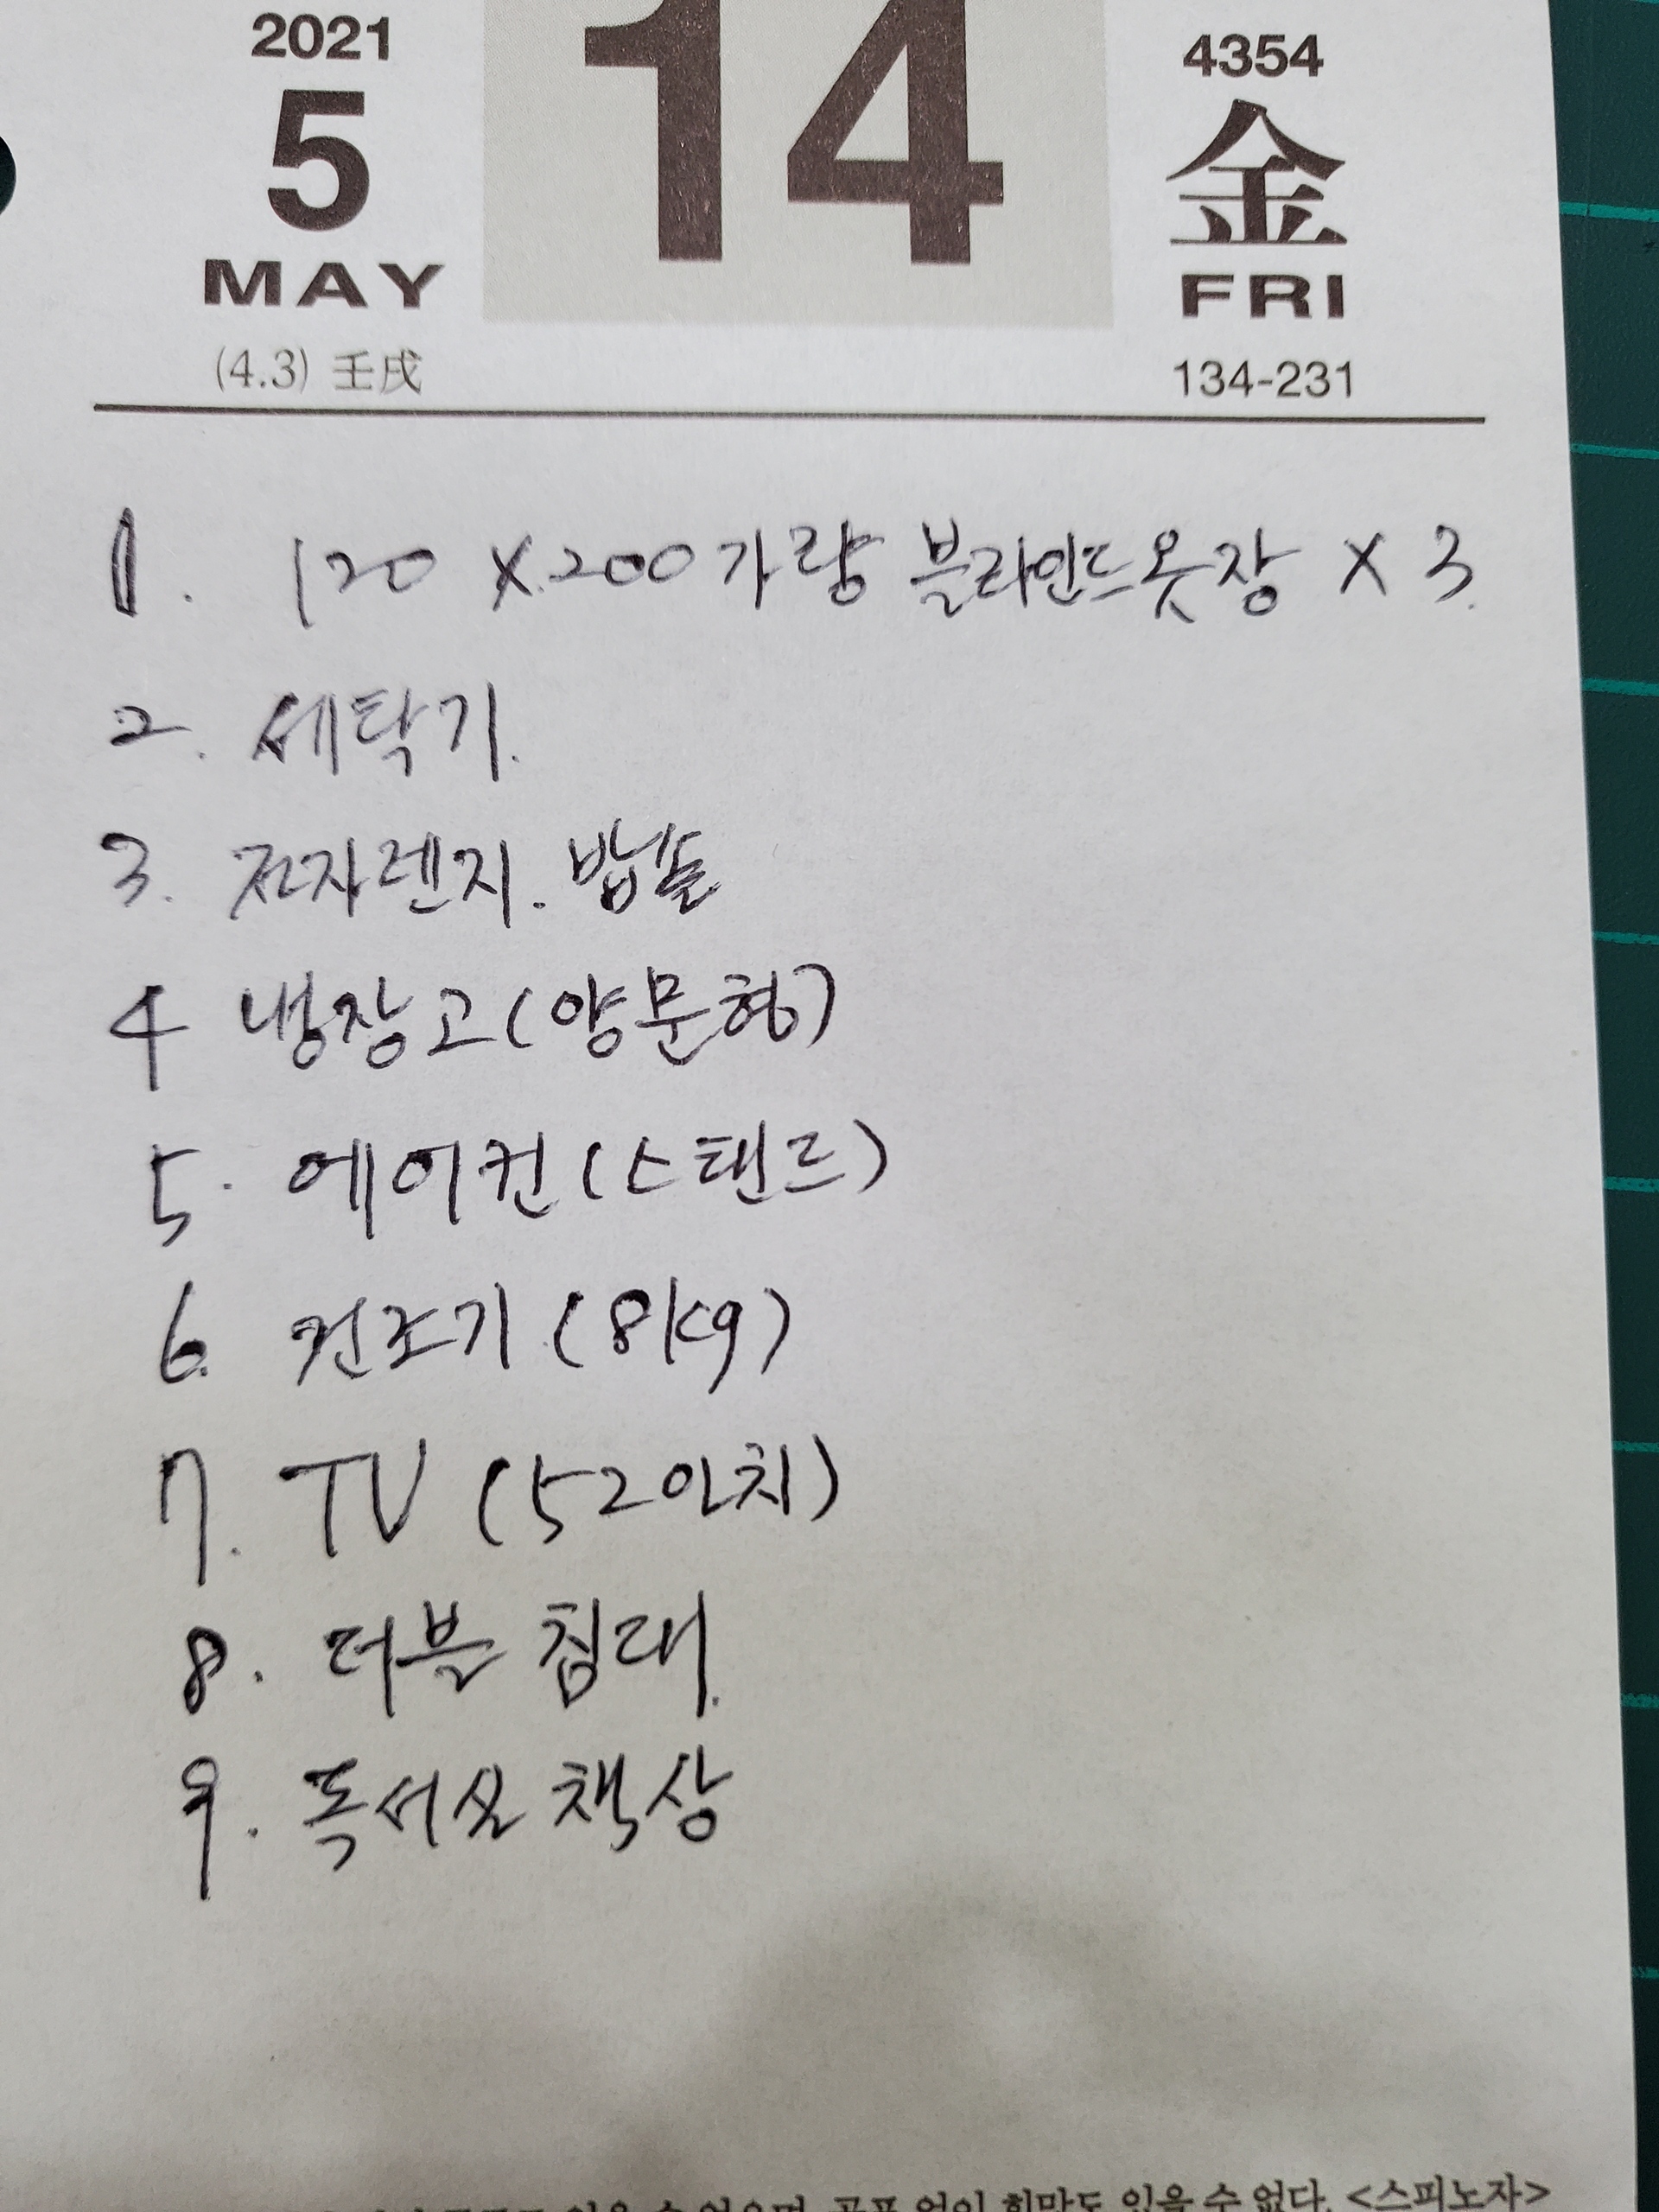 2021
14
4354
5
金
MAY
FRI
(4.3) 壬戌
134-231
1. 120 X 200 가량 블라인드옷장 X 3.
2. 세탁기.
3. 전자렌지. 밥솥
4 냉장고(양문형)
5. 에어컨(스탠드)
6. 건조기 (8kg)
7. TV (52인치)
8. 더블 침대.
9. 독서실 책상
없이 희망도 있을 수 없다. <스피노자>